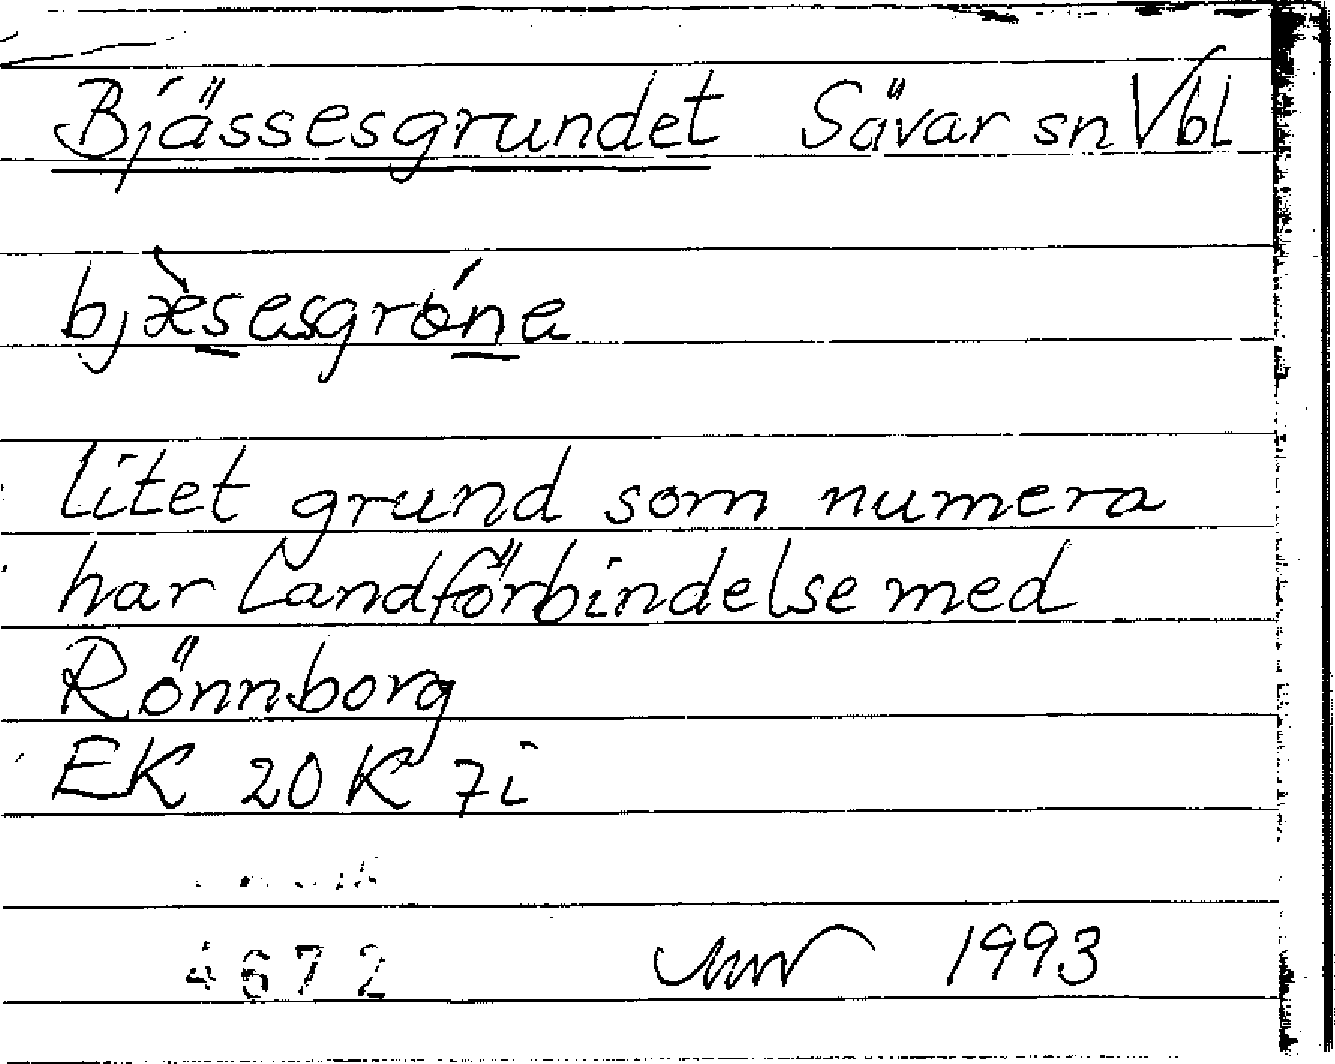 Bjässesgrundet Sävar sn Vbl
bjæ̀sesgróne
litet grund som numera
har landförbindelse med
Rönnborg
EK 20K 7i
4672 1993